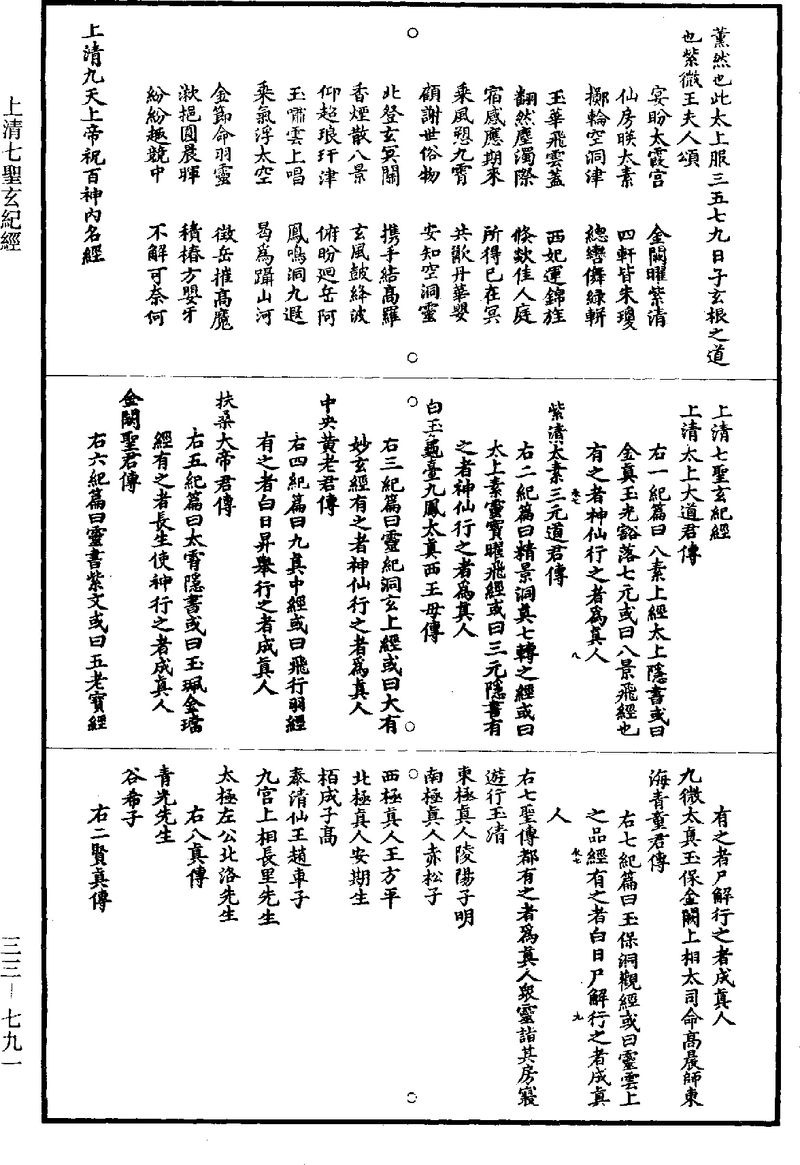 薰然也此太上服三五七九日子玄根之道
也紫微王夫人頌
宴盼太霞宮　金闕曜紫清
仙房暎太素　四軒皆朱瓊
擲輪空洞津　總轡儛綠軿
玉華飛雲蓋　西妃運錦旌
翻然塵濁際　倏欻佳人庭
宿感應期來　所得已在冥
乘風憩九霄　共歡丹華嬰
顧謝世俗物　安知空洞靈
北登玄冥闕　携手結高羅
香煙散八景　玄風鼓絳波
仰超琅玕津　俯盼廻岳阿
玉嘯雲上唱　鳳鳴洞九遐
乘氣浮太空　曷爲躡山河
金節命羽靈　徵岳摧髙魔
漱挹圓晨暉　積椿方嬰牙
紛紛趣競中　不解可奈何
上清九天上帝祝百神內名經
上清七聖玄紀經
上清太上大道君傳
右一紀篇曰八素上經太上隱書或曰
金真玉光豁落七元或曰八景飛經也
有之者神仙行之者爲真人
卷七　八
紫清太素三元道君傳
右二紀篇曰精景洞真七轉之經或曰
太上素靈寶曜飛經或曰三元隱書有
之者神仙行之者爲真人
白玉龜臺九鳳太真西王母傳
右三紀篇曰靈紀洞玄上經或曰大有
妙玄經有之者神仙行之者爲真人
中央黄老君傳
右四紀篇曰九真中經或曰飛行羽經
有之者白日昇舉行之者成真人
扶桑大帝君傳
右五紀篇曰太霄隱書或曰玉珮金璫
經有之者長生使神行之者成真人
金闕聖君傳
右六紀篇曰靈書紫文或曰五老寶經
有之者尸解行之者成真人
九微太真玉保金闕上相太司命髙晨師東
海青童君傳
右七紀篇曰玉保洞觀經或曰靈雲上
之品經有之者白日尸解行之者成真
卷七　九
人
右七聖傳都有之者爲真人衆靈詣其房寢
遊行玉清
東極真人陵陽子明
南極真人赤松子
西極真人王方平
北極真人安期生
栢成子髙
泰清仙王趙車子
九宫上相長里先生
太極左公北洛先生
右八真傳
青光先生
谷希子
右二賢真傳
上清七聖玄紀經
三三—七九一